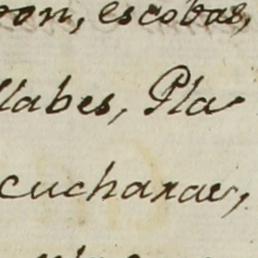 pon, escobas,
llabes, Pla
cucharas,